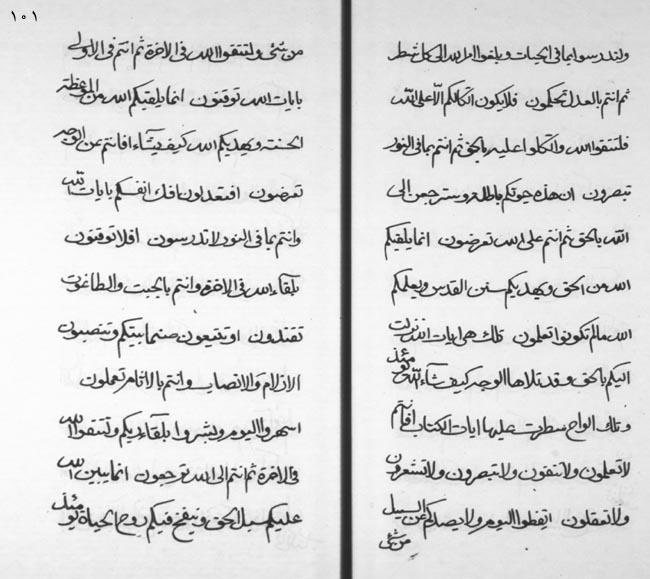 ولتدرسوا بما فى الحيات ويلغوا امر الله الى كل شطر
ثم انتم بالعدل تحكمون فلا يكون اتكالكم الا على الله
فلتتقوا الله واتكلوا عليه بالحق ثم انتم بما فى النور
تبصرون ان هذه حيوتكم باطلة وسترجعن الى
الله بالحق ثم انتم على الله تعرضون انما يلقيكم
الله من الحق ويهديكم سنن القدس ويعلمكم
الله ما لم تكونوا تعلمون تلك هى ايات الله نزلت
اليكم بالحق وقد تلاها الوجه كيف شاء الله يومئذ
وتلك الواح سطرت عليها ايات الكتاب افانتم
لا تعلمون ولا تتقون ولا تبصرون ولا تشعرون
ولا تعقلون اتقظوا اليوم ولا يصدكم عن السبيل
من شئ
١٠١
من شئ ولتتقوا الله فى الاخرة ثم انتم فى الاولى
بايات الله توقنون انما يلقيكم الله من الموعظة
الحسنة ويهديكم الله كيف يشاء افانتم عن الوجه
تعرضون افتعدلون افك انفسكم بايات الله
وانتم بما فى النور لا تدرسون افلا توقنون
بلقاء الله فى الاخرة وانتم بالجبت والطاغوت
تقتدون او تتبعون صنما ببيتكم وتنصبون
الازلام والانصاب وانتم بالاثام تعملون
اسهروا اليوم وبشروا بلقاء ربكم ولتتقوا الله
فى الاخرة ثم انتم الى الله ترجعون انما يبين الله
عليكم سبل الحق وينفخ فيكم روح الحياة يومئذ